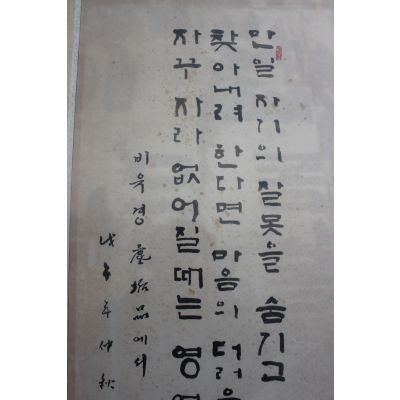 만일 자기의 잘못을 숨기고
찾아내려 한다면 마음의 더러
자꾸 자라 없어질때는 영
비유경 塵垢品에서
戊午年 仲秋